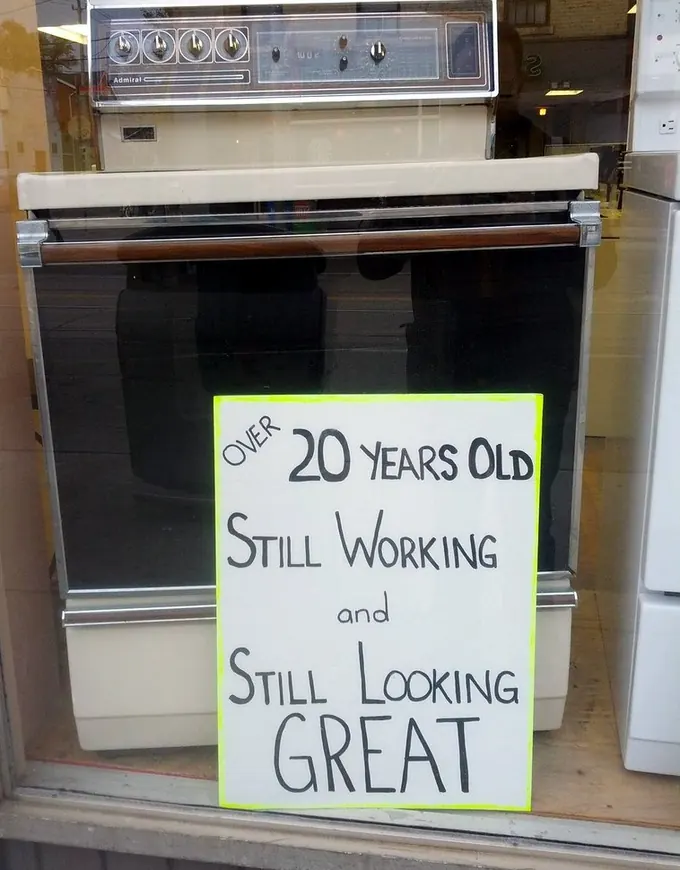 Admiral
OVER 20 YEARS OLD
STILL WORKING
and
STILL LOOKING
GREAT